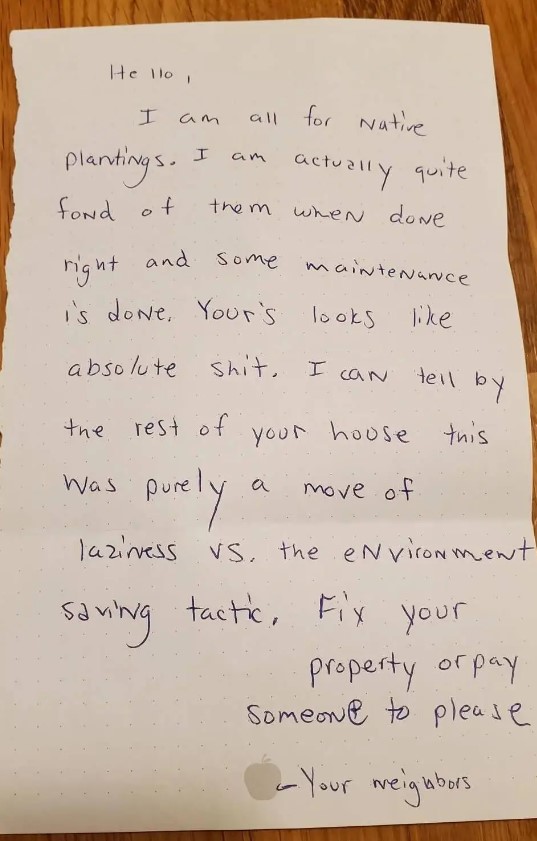 Hello,
I am all for Native
plantings. I am actually quite
fond of them when done
right and some maintenance
is done. Your's looks like
absolute shit. I can tell by
the rest of your house this
was purely a move of
laziness vs. the environment
saving tactic. Fix your
property or pay
someone to please
- Your neighbors